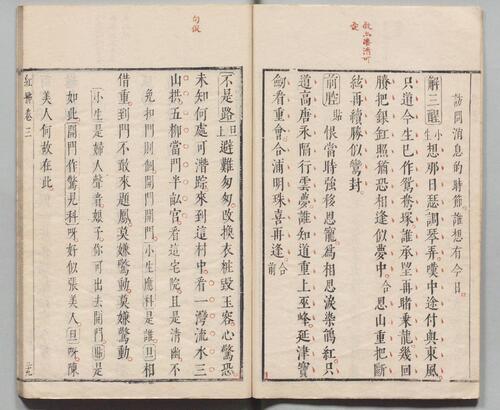 訪問消息的時節誰想有今日
解三酲 小生 想那日瑟調琴弄嘆中途付與東風
只道今生已作鴛塚誰承望再睹乘龍幾回
賸把銀釭照猶恐相逢似夢中 合 恩山重把斷
絃再續勝似鸞封
前腔 貼 恨當時強移恩寵為相思淚染鵑紅只
道高唐永隔行雲夢誰知道重上巫峰延津寶
劒看重會合浦明珠喜再逢 合前
不是路 旦上 避難匆匆改換衣粧毀玉容心驚恐
未知何處可潛踪來到這村中看一灣流水三
山拱五柳當門半畝宮看這宅院且是清幽不
免扣門則個開門開門 小生 應科是誰 旦 相
借重到門不敢來題鳳莫嫌驚動莫嫌驚動
小生 是婦人聲音娘子你可出去開門 貼 是
如此 開門作驚見科 呀好似張美人 旦 呀陳
美人何故在此
紅拂卷三